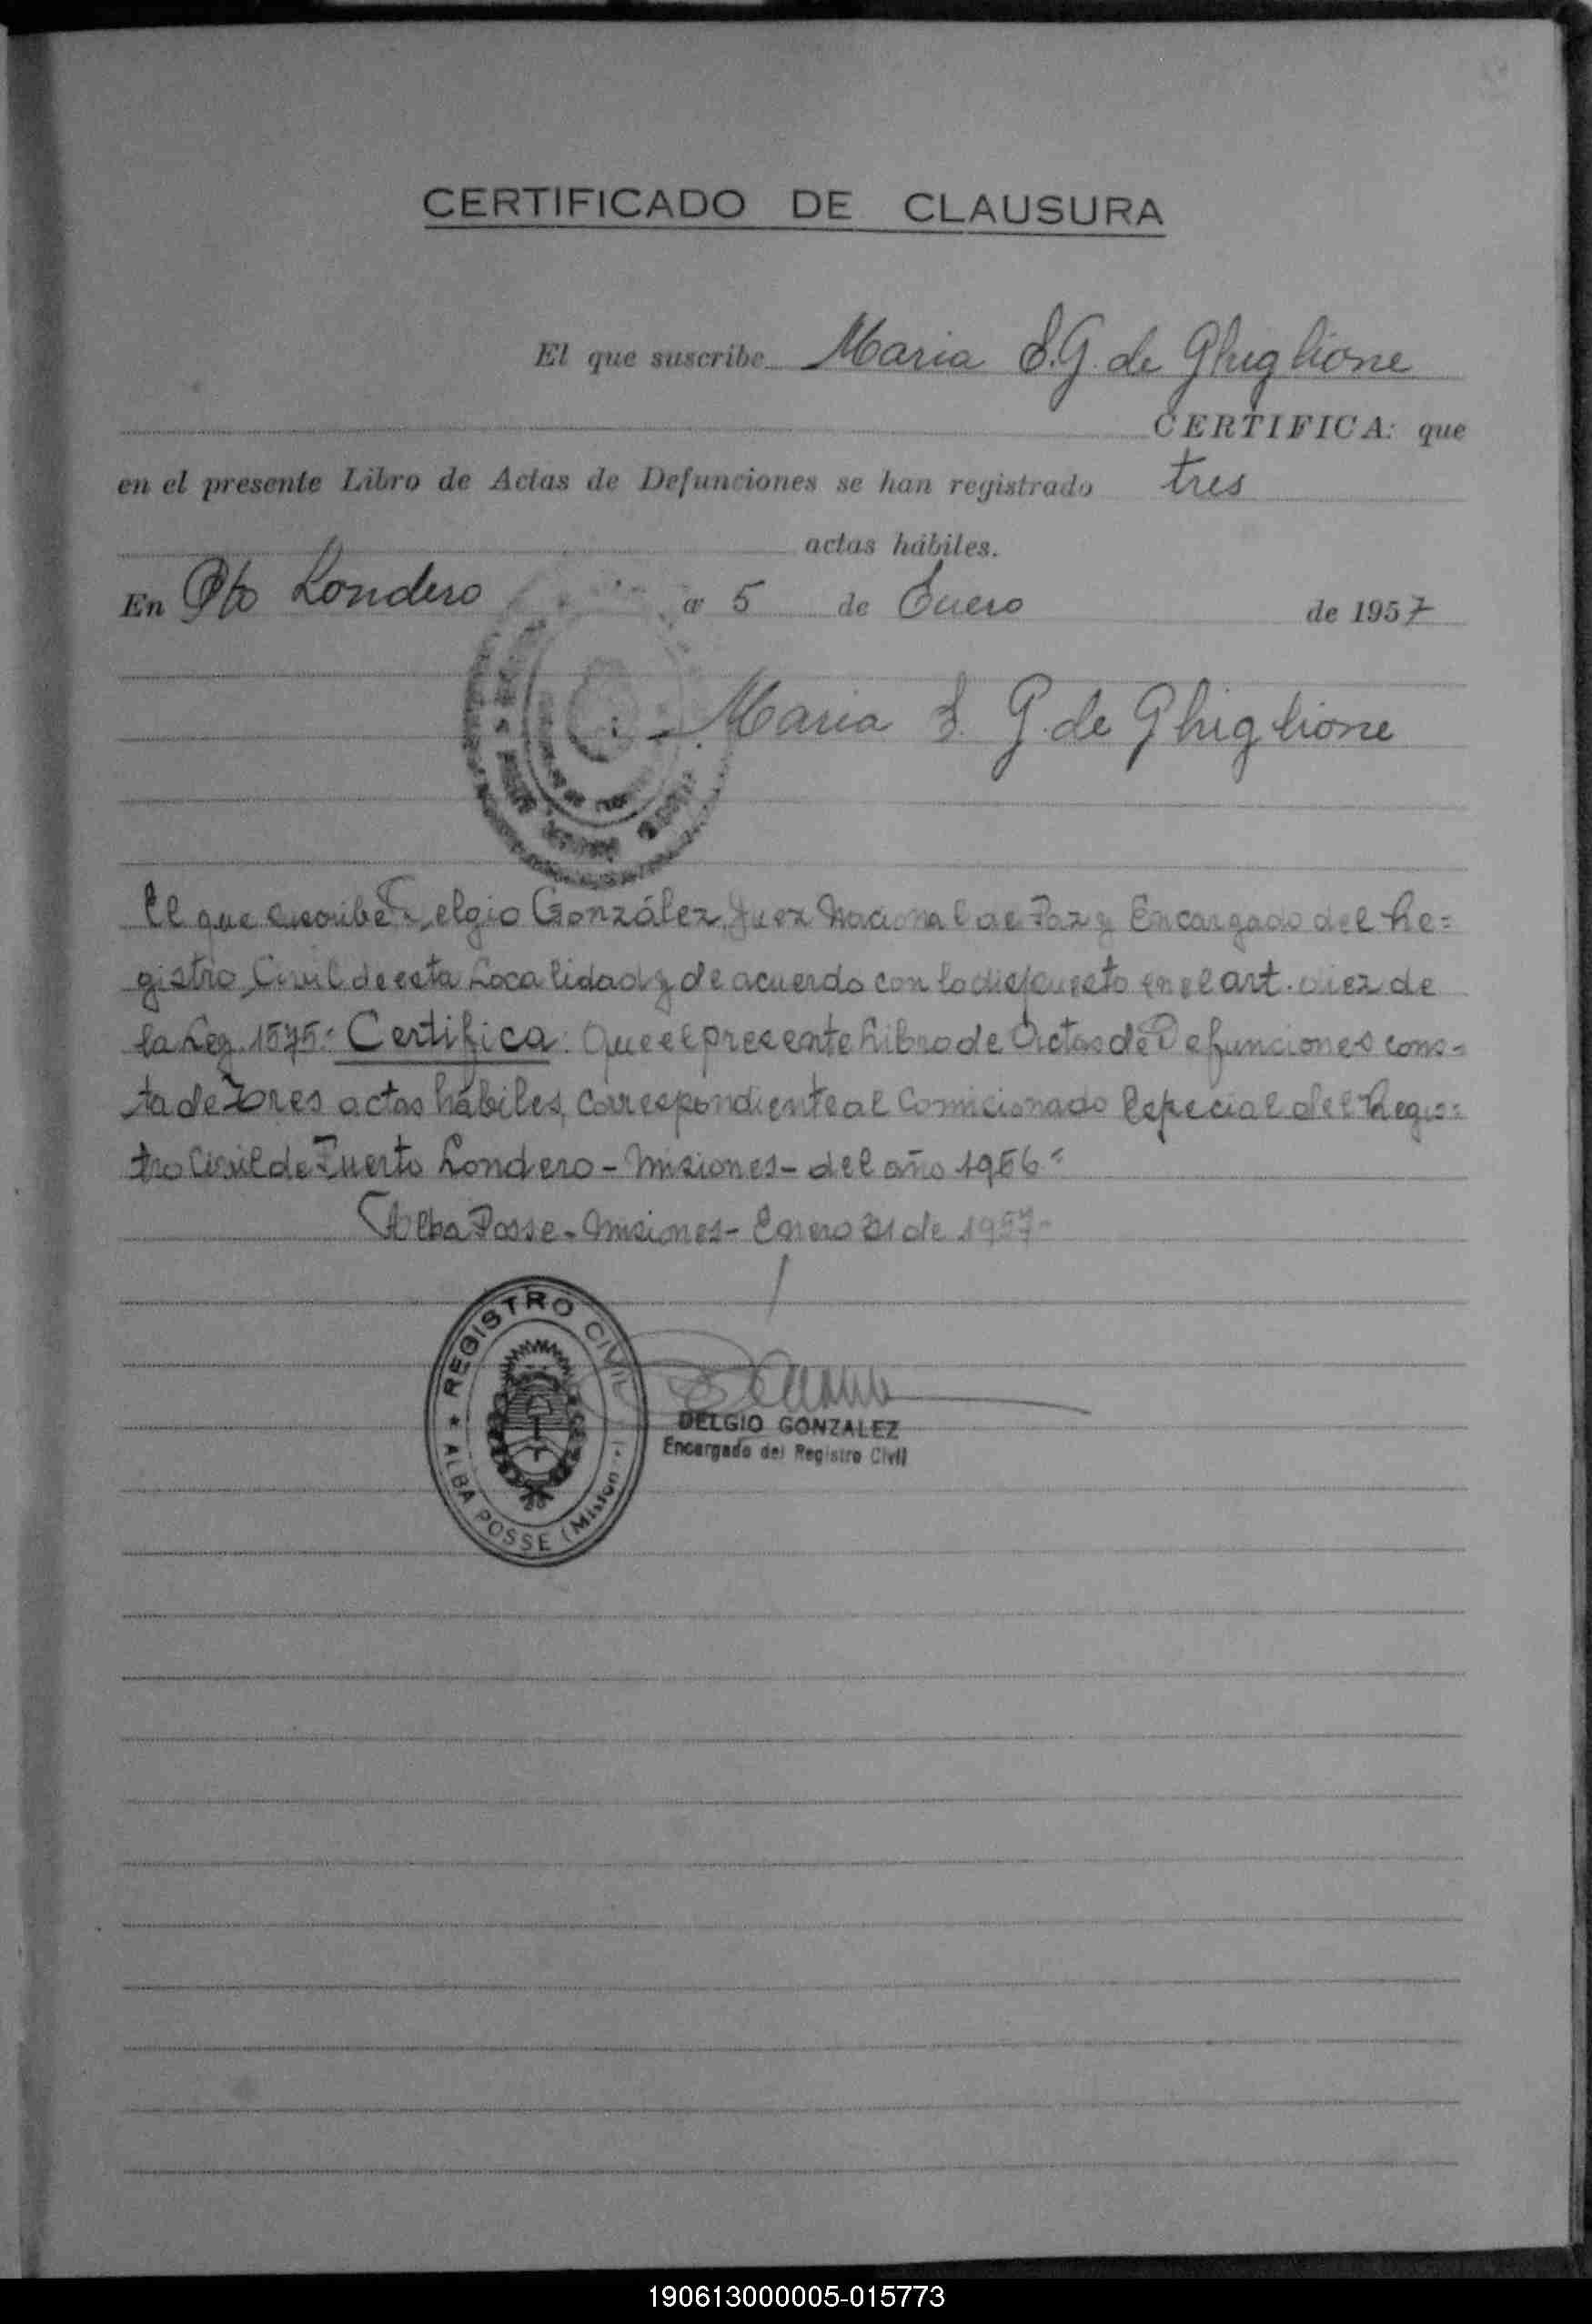 CERTIFICADO DE CLAUSURA
El que suscribe Maria S.G. de Ghiglione
CERTIFICA: que
en el presente Libro de Actas de Defunciones se han registrado tres
actas hábiles.
En Pto Londero a 5 de Enero de 1957
Maria S. G. de Ghiglione
El que suscribe Delgio González, Juez Nacional de Paz y Encargado del Re=
gistro Civil de esta Localidad y de acuerdo con lo dispuesto en el art. diez de
la Ley 1575: Certifica: Que el presente Libro de Actas de Defunciones cons-
ta de Tres actas hábiles, correspondiente al Comicionado Especial del Regis=
tro Civil de Puerto Londero - Misiones - del año 1956=
Alba Posse - Misiones - Enero 31 de 1957-
REGISTRO CIVIL
ALBA POSSE (Mision
DELGIO GONZALEZ
Encargado del Registro Civil
190613000005-015773